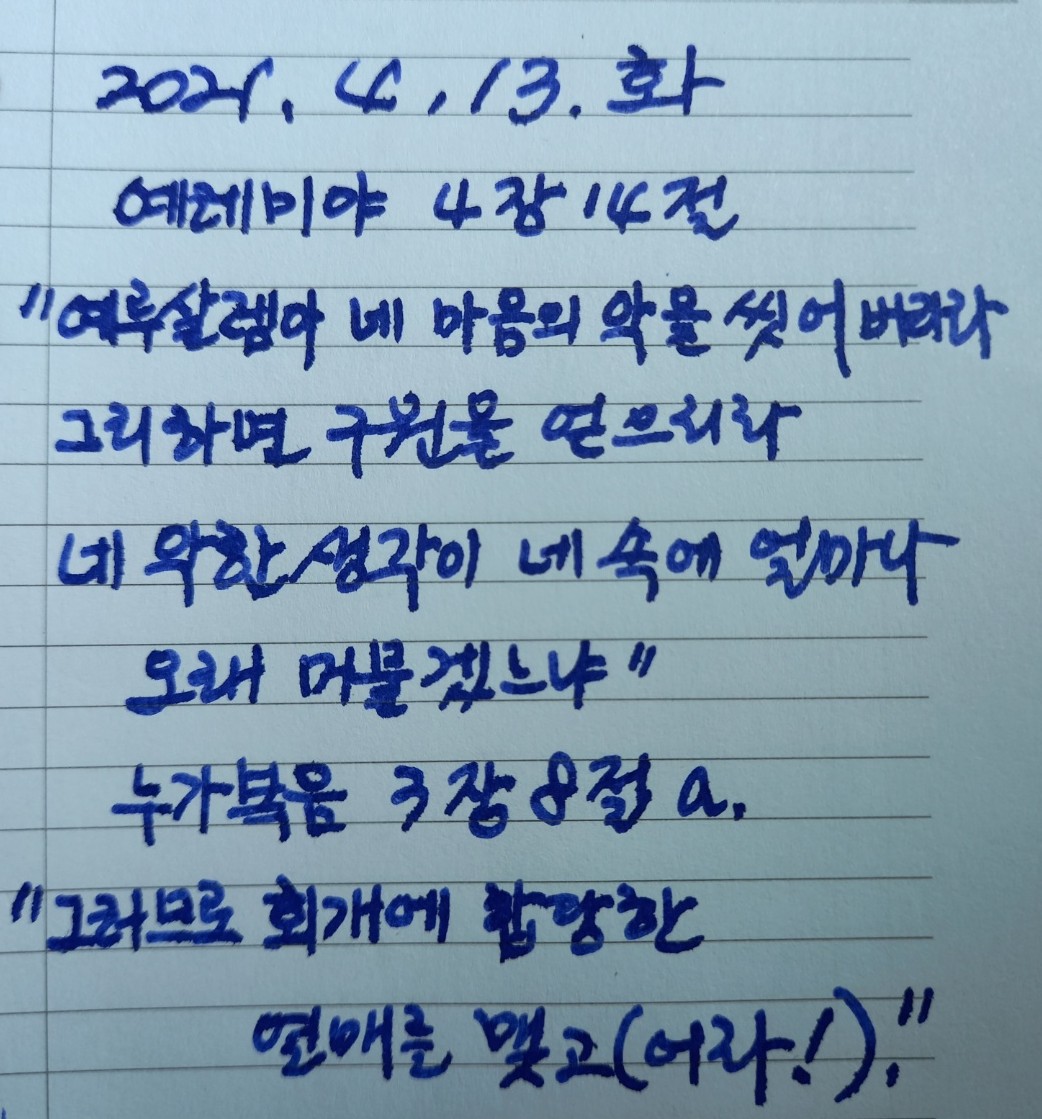 2021. 4. 13. 화
예레미야 4장 14절
"예루살렘아 네 마음의 악을 씻어 버리라
그리하면 구원을 얻으리라
네 악한 생각이 네 속에 얼마나
오래 머물겠느냐"
누가복음 3장 8절 a.
"그러므로 회개에 합당한
열매를 맺고(어라!)."